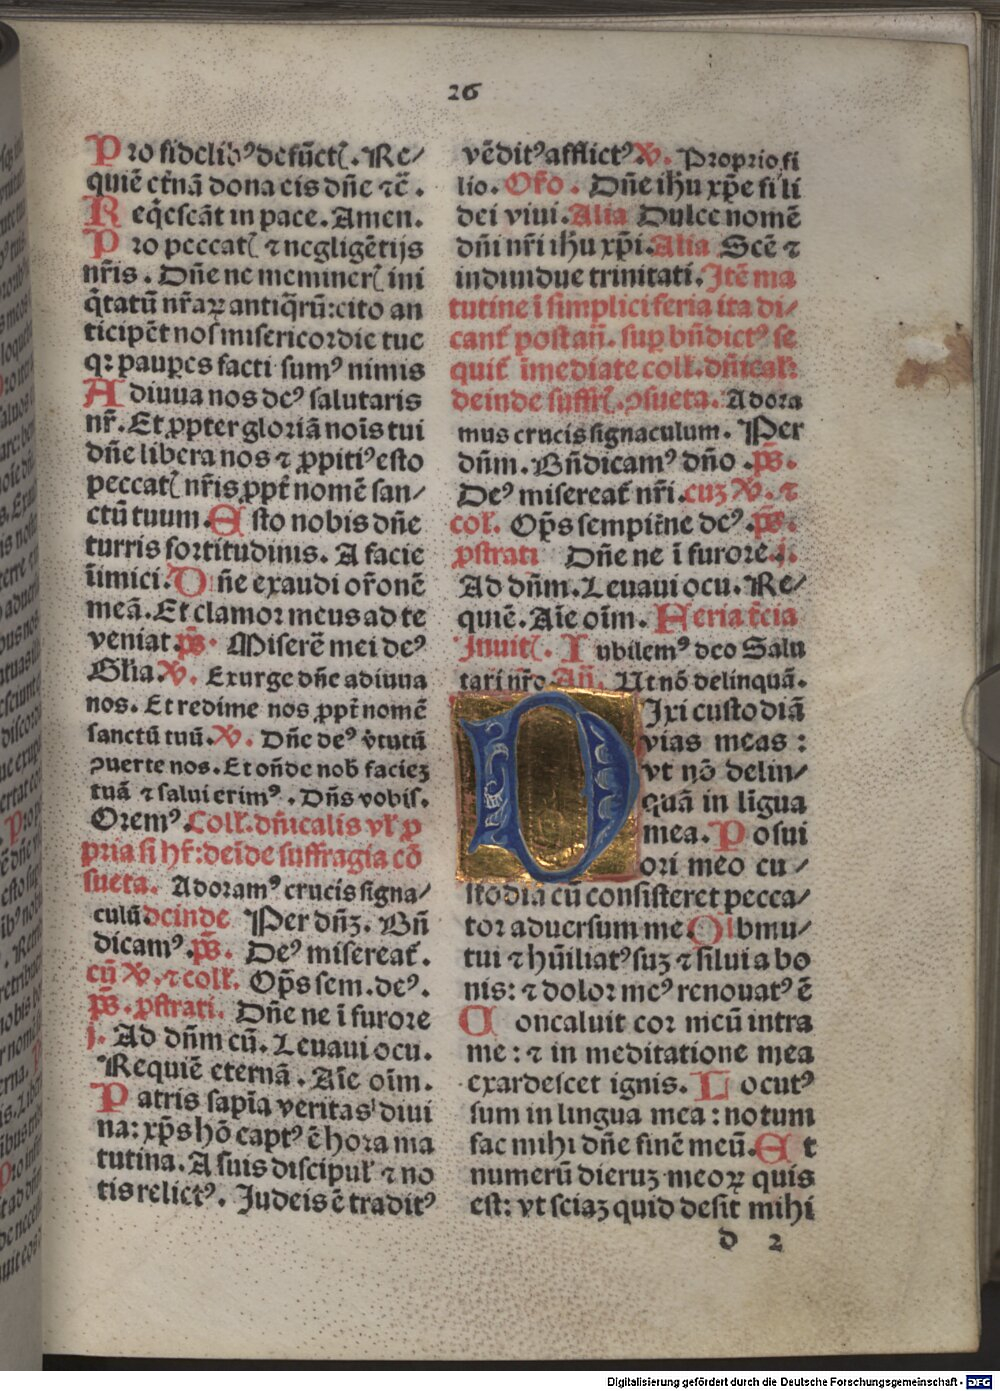 26
Pro fidelib⁹ defūct(. Re/
quiē et̄nā dona eis dn̄e ⁊c̄.
Reqͥescāt in pace. Amen.
Pro peccat( ⁊ negligētijs
nr̄is. Dn̄e ne meminer( ini
q̄tatū nr̄aꝝ antiq̄rū: cito an
ticipēt nos misericordie tue
qꝛ pauꝑes facti sum⁹ nimis
Adiuua nos de⁹ salutaris
nr̄. Et ꝓpter gloriā nois̄ tui
dn̄e libera nos ⁊ ꝓpiti⁹ esto
peccat( nr̄is ꝓpt̄ nomē san/
ctū tuum. Esto nobis dn̄e
turris fortitudinis. A facie
inīmici. Dn̄e exaudi or̄onē
meā. Et clamor meus ad te
veniat. p̄s. Miserē mei de⁹
Gl̄ia. V. Exurge dn̄e adiuua
nos. Et redime nos ꝓpt̄ nomē
sanctū tuū. V. Dn̄e de⁹ v̄tutū
ꝯuerte nos. Et on̄de nob̄ faciēꝫ
tuā ⁊ salui erim⁹. Dn̄s vobis.
Orem⁹. Coll̄. dn̄icalis vl̄ ꝓ
pria si hr̄: dein̄de suffragia cō
sueta. Adoram⁹ crucis signa/
culū deinde Per dn̄ꝫ. Bn̄
dicam⁹. p̄s. De⁹ misereat̄.
cū V. ⁊ coll̄. Op̄s sem. de⁹.
p̄s. ꝓstrati. Dn̄e ne ī furore
j. Ad dn̄m cū. Leuaui ocu.
Requiē eternā. Aīe oīm.
Patris sapīa veritas diui
na: xp̄s hō capt⁹ ē hora ma
tutina. A suis discipul̄ ⁊ no
tis relict⁹. Judeis ē tradit⁹
vēdit⁹ afflict⁹ V. Proprio fi
lio. Or̄o. Dn̄e ihū xp̄e fili
dei viui. Alia Dulce nomē
dn̄i nr̄i ihū xp̄i. Alia Scē ⁊
indiuidue trinitati. Jtē ma
tutine ī simplici feria ita di/
cant̄ post an̄. suꝑ bn̄dict⁹ se
quit̄ īmediate coll̄. dn̄ical̄:
deinde suffr( ꝯsueta. Adora
mus crucis signaculum. Per
dn̄m. Bn̄dicam⁹ dn̄o. p̄s.
De⁹ misereat̄ nr̄i. cuꝫ V. ⁊
col̄. Op̄s sempit̄ne de⁹. p̄s.
ꝓstrati Dn̄e ne ī furore. j.
Ad dn̄m. Leuaui ocu. Re/
quiē. Aīe oīm. Feria t̄cia
Jnuit(. Iubilem⁹ deo Salu
tari nr̄o. An̄. Ut nō delinquā.
DIxi custodiā
vias meas:
vt nō delin/
quā in ligua
mea. Posui
ori meo cu/
stodiā cū consisteret pecca/
tor aduersum me. Obmu/
tui ⁊ hūiliat⁹ suꝫ ⁊ silui a bo
nis: ⁊ dolor me⁹ renouat⁹ ē
Concaluit cor meū intra
me: ⁊ in meditatione mea
exardescet ignis. Locut⁹
sum in lingua mea: notum
fac mihi dn̄e finē meū. Et
numerū dieruꝫ meoꝝ quis
est: vt sciaꝫ quid desit mihi
d 2
Digitalisierung gefördert durch die Deutsche Forschungsgemeinschaft - DFG